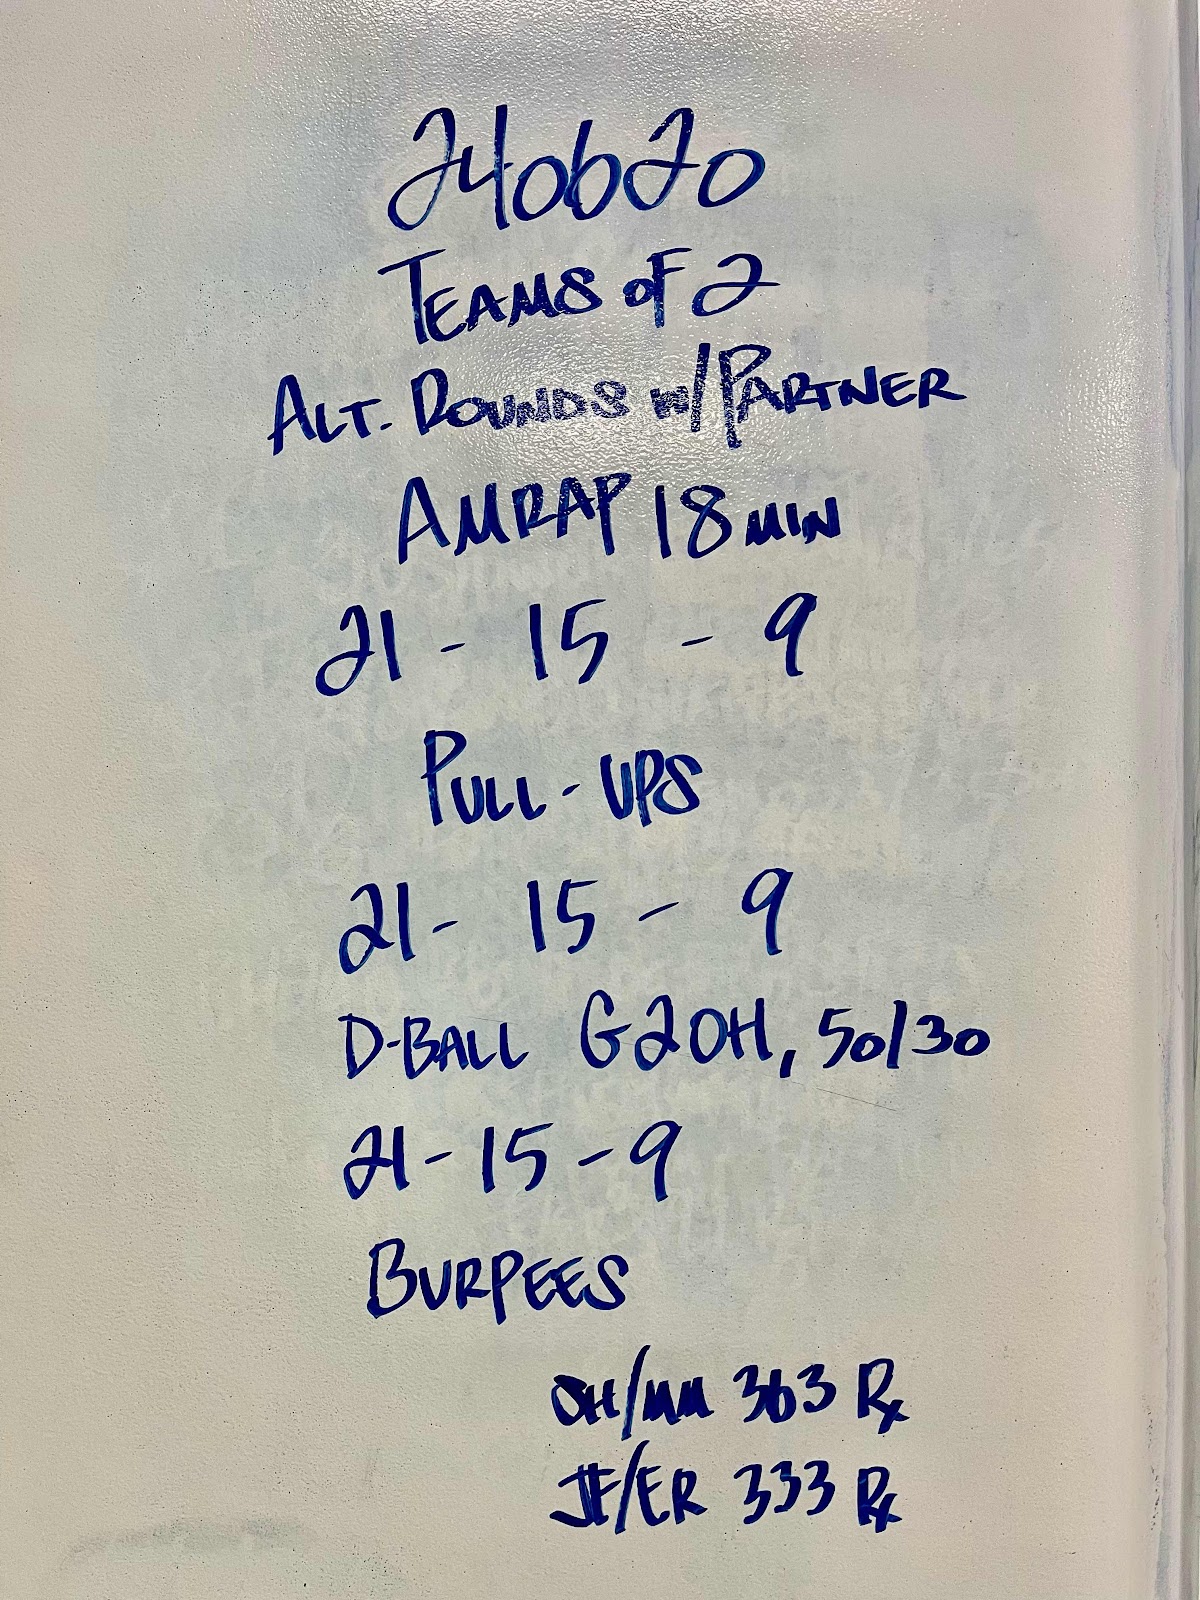 240620
TEAMS OF 2
ALT. ROUNDS W/ PARTNER
AMRAP 18 MIN
21 - 15 - 9
PULL-UPS
21 - 15 - 9
D-BALL G2OH, 50/30
21 - 15 - 9
BURPEES
SH/MM 363 Rx
JF/ER 333 Rx